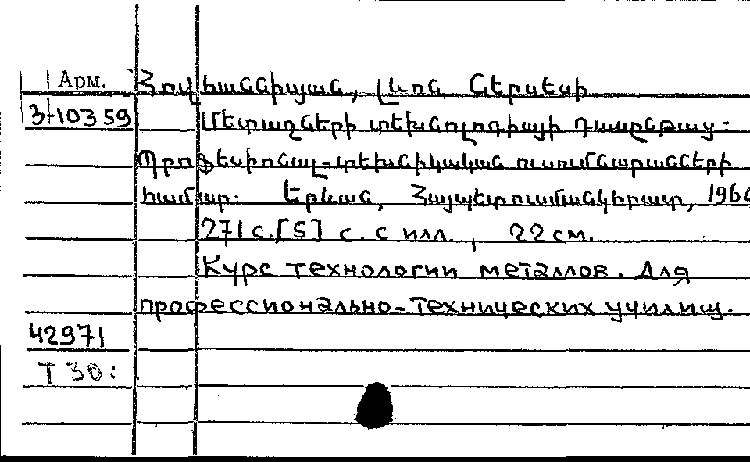 Арм. Հովհաննիսյան, Լևոն Ներսեսի
3-10359 Մետաղների տեխնոլոգիայի դասընթաց:
Պրոֆեսիոնալ-տեխնիկական ուսումնարանների
համար: Երևան, Հայպետուսմանկհրատ, 196
271 с. [5] с. с илл., 22 см.
Курс технологии металлов. Для
профессионально-технических училищ.
42971
Т 30: